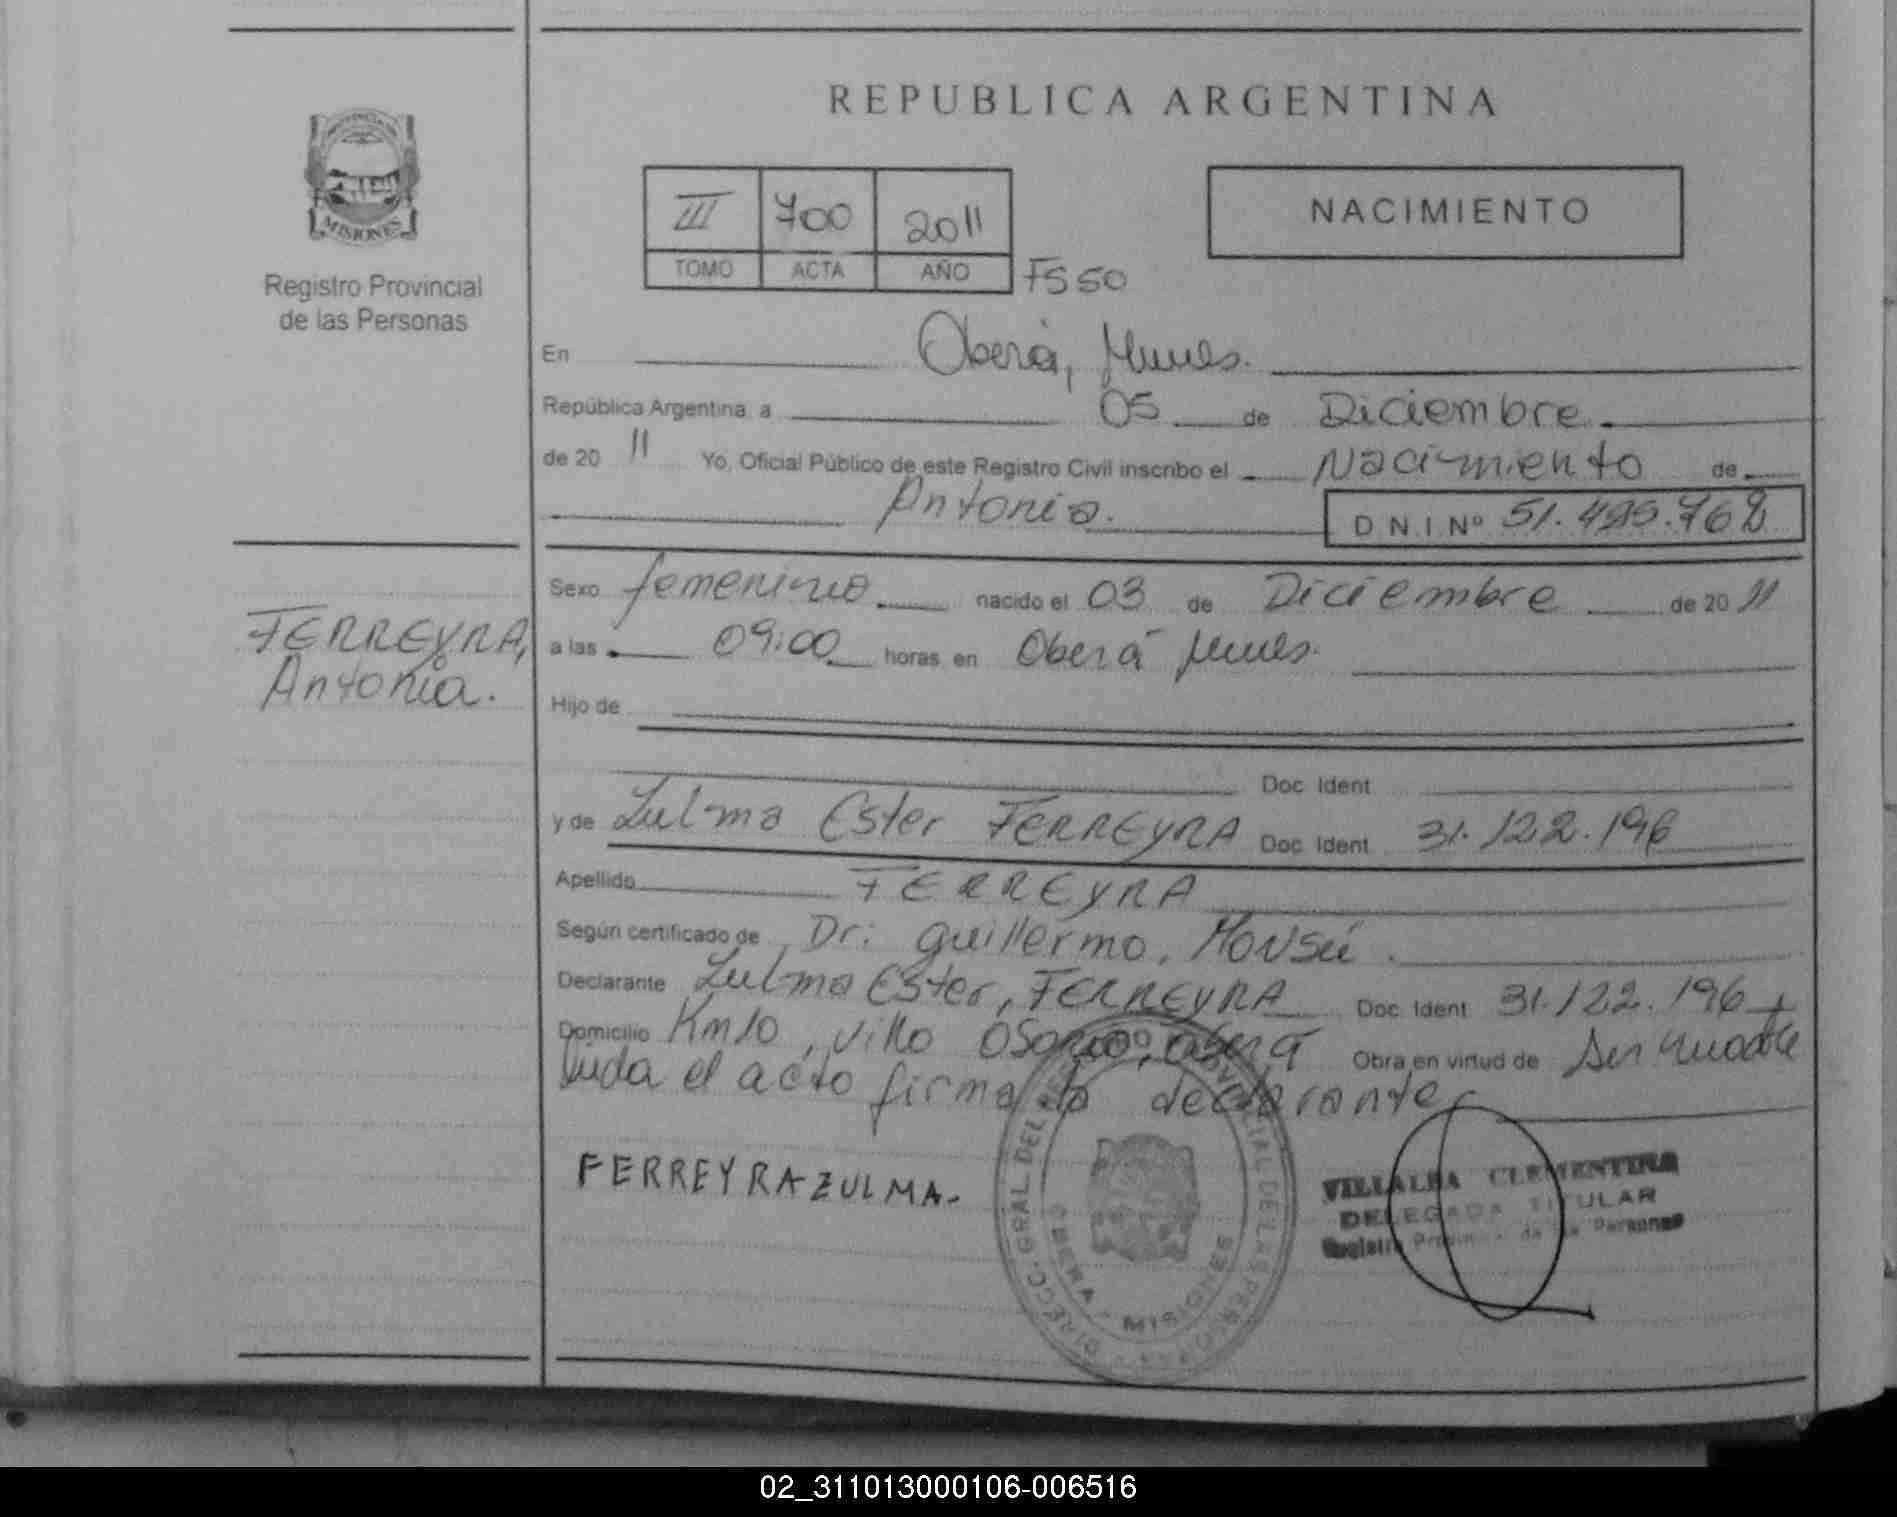 REPUBLICA ARGENTINA
MISIONES
Registro Provincial
de las Personas
III 700 2011
TOMO ACTA AÑO
NACIMIENTO
En Oberá,
República Argentina, a 05 de Diciembre
de 20 11 Yo, Oficial Público de este Registro Civil inscribo el Nacimiento de
Antonia. D.N.I. Nº
Sexo femenino nacido el 03 de Diciembre de 20 11
FERREYRA,
Antonia.
a las 09:00 horas en Oberá
Hijo de
Doc. Ident
y de Zulma Ester FERREYRA Doc. Ident 31.122.196
Apellido FERREYRA
Según certificado de Dr: Guillermo,
Declarante Zulma Ester, FERREYRA Doc. Ident 31.122.196
Domicilio Km10, Villa Obra en virtud de ser madre
el acto firma la declarante
FERREYRA ZULMA.
VILLALBA CLEMENTINA
DELEGADA TITULAR
Registro de las Personas
OBERA - MISIONES
02_311013000106-006516